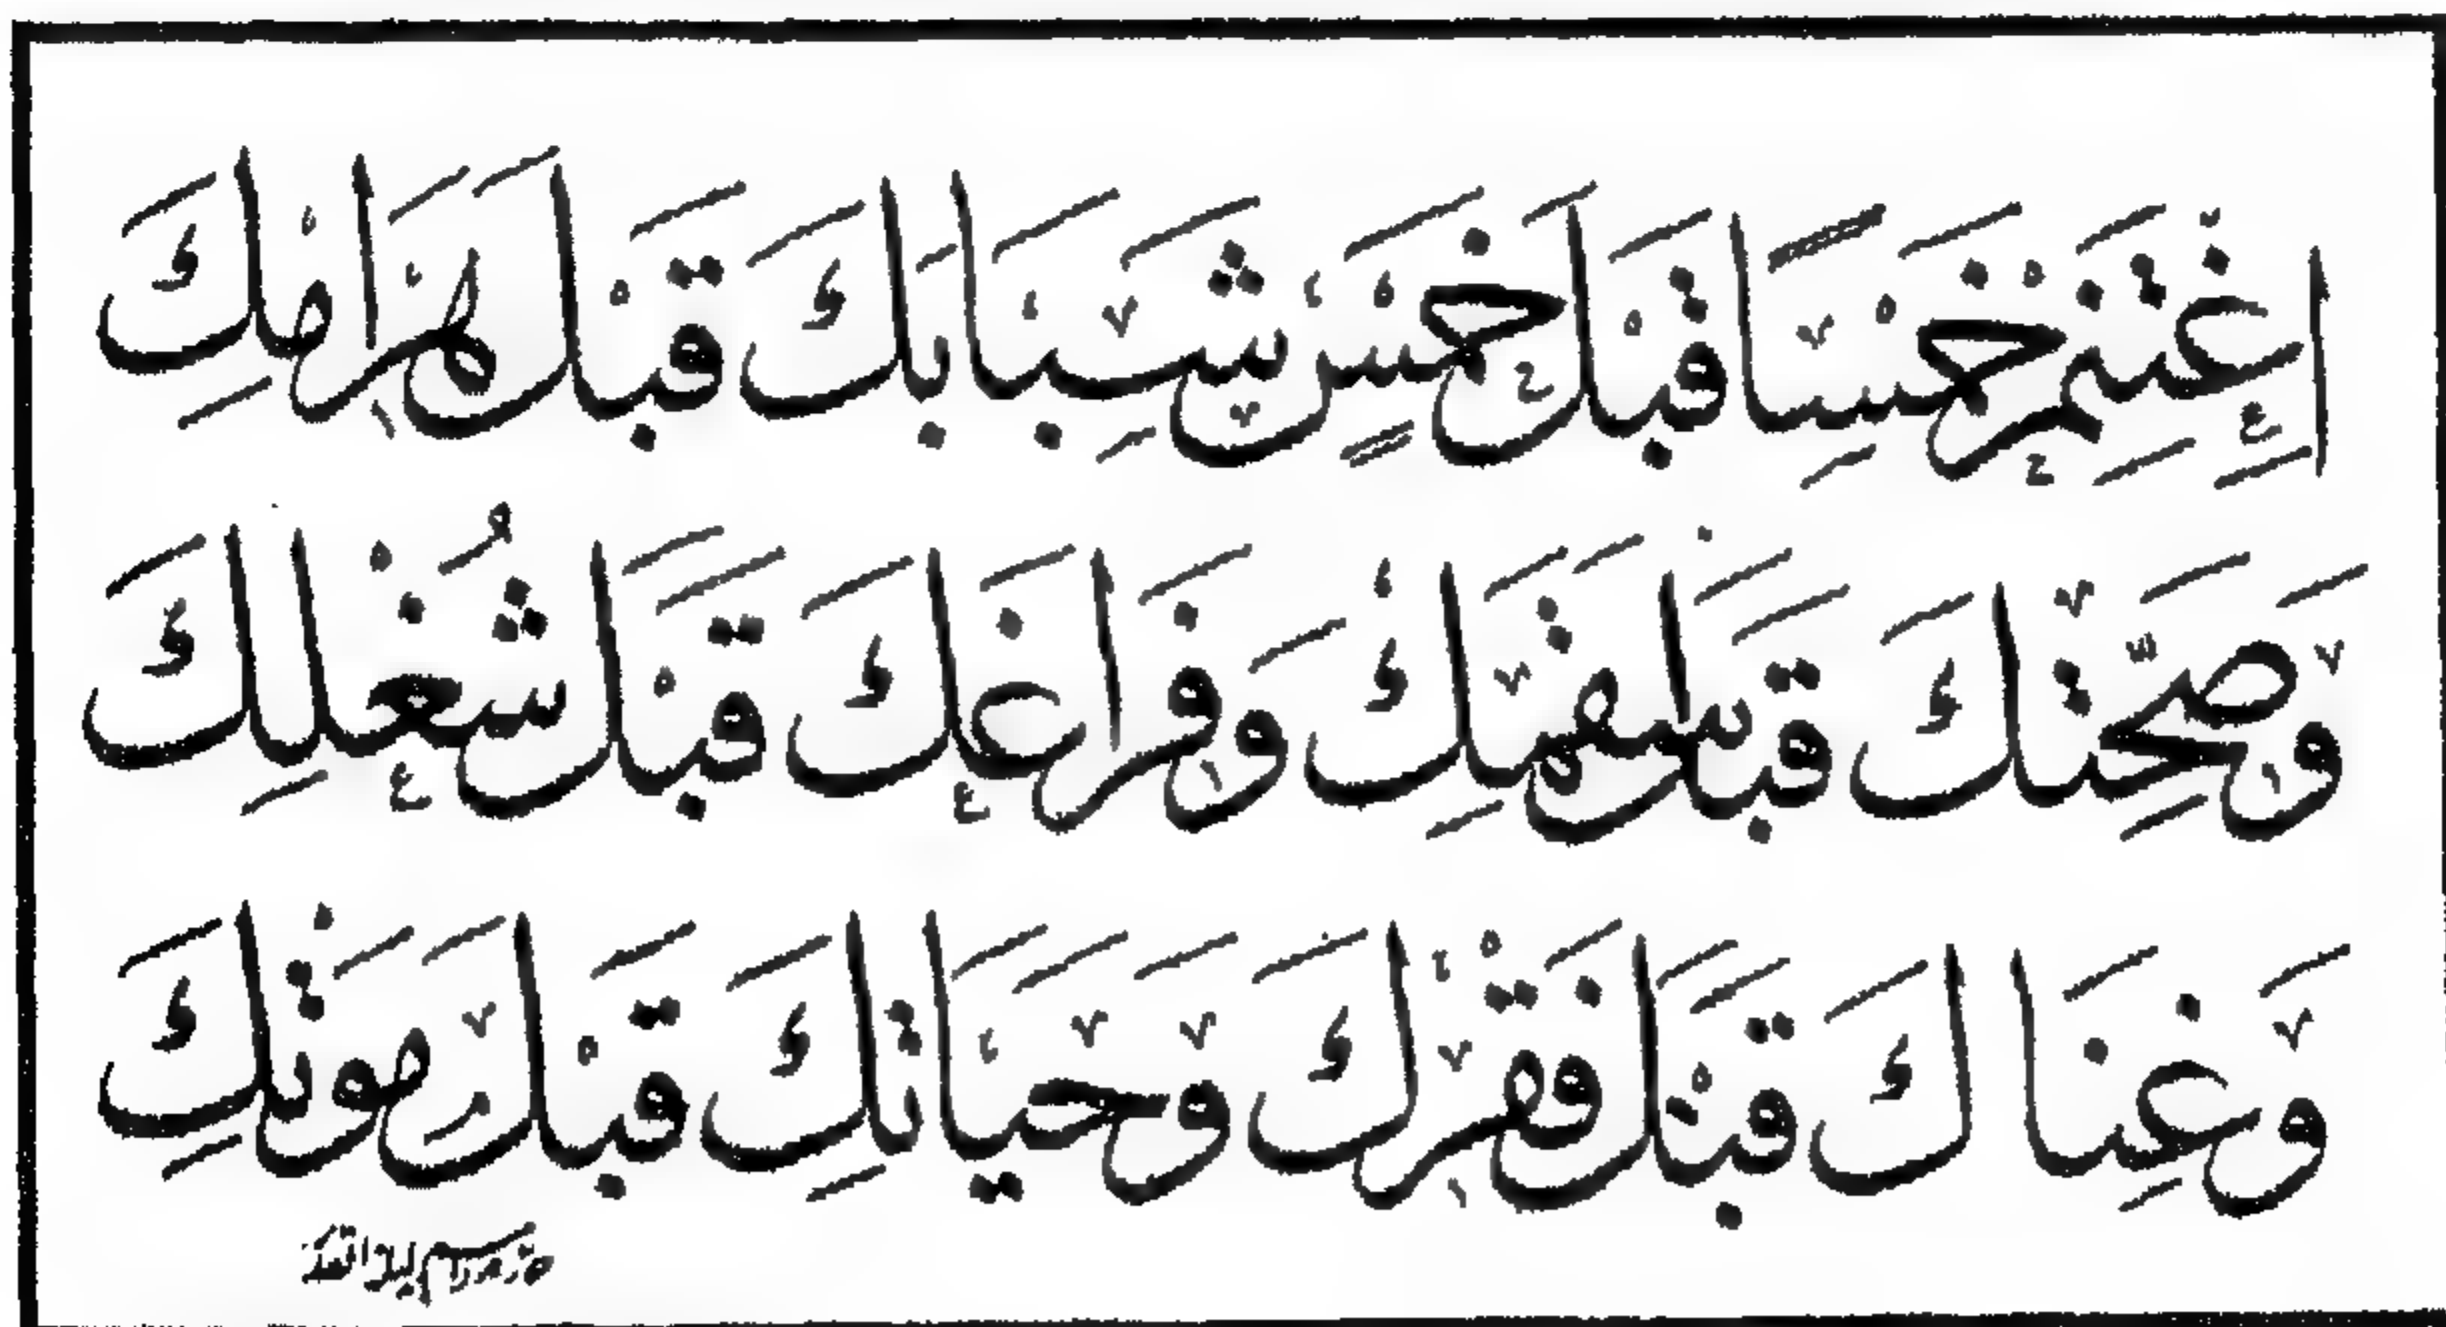 اِغْتَنِمْ خَمْسًا قَبْلَ خَمْسٍ شَبَابَكَ قَبْلَ هَرَامِكَ
وَصِحَّتَكَ قَبْلَ سَقَمِكَ وَفَرَاغَكَ قَبْلَ شُغْلِكَ
وَغِنَاكَ قَبْلَ فَقْرِكَ وَحَيَاتَكَ قَبْلَ مَوْتِكَ